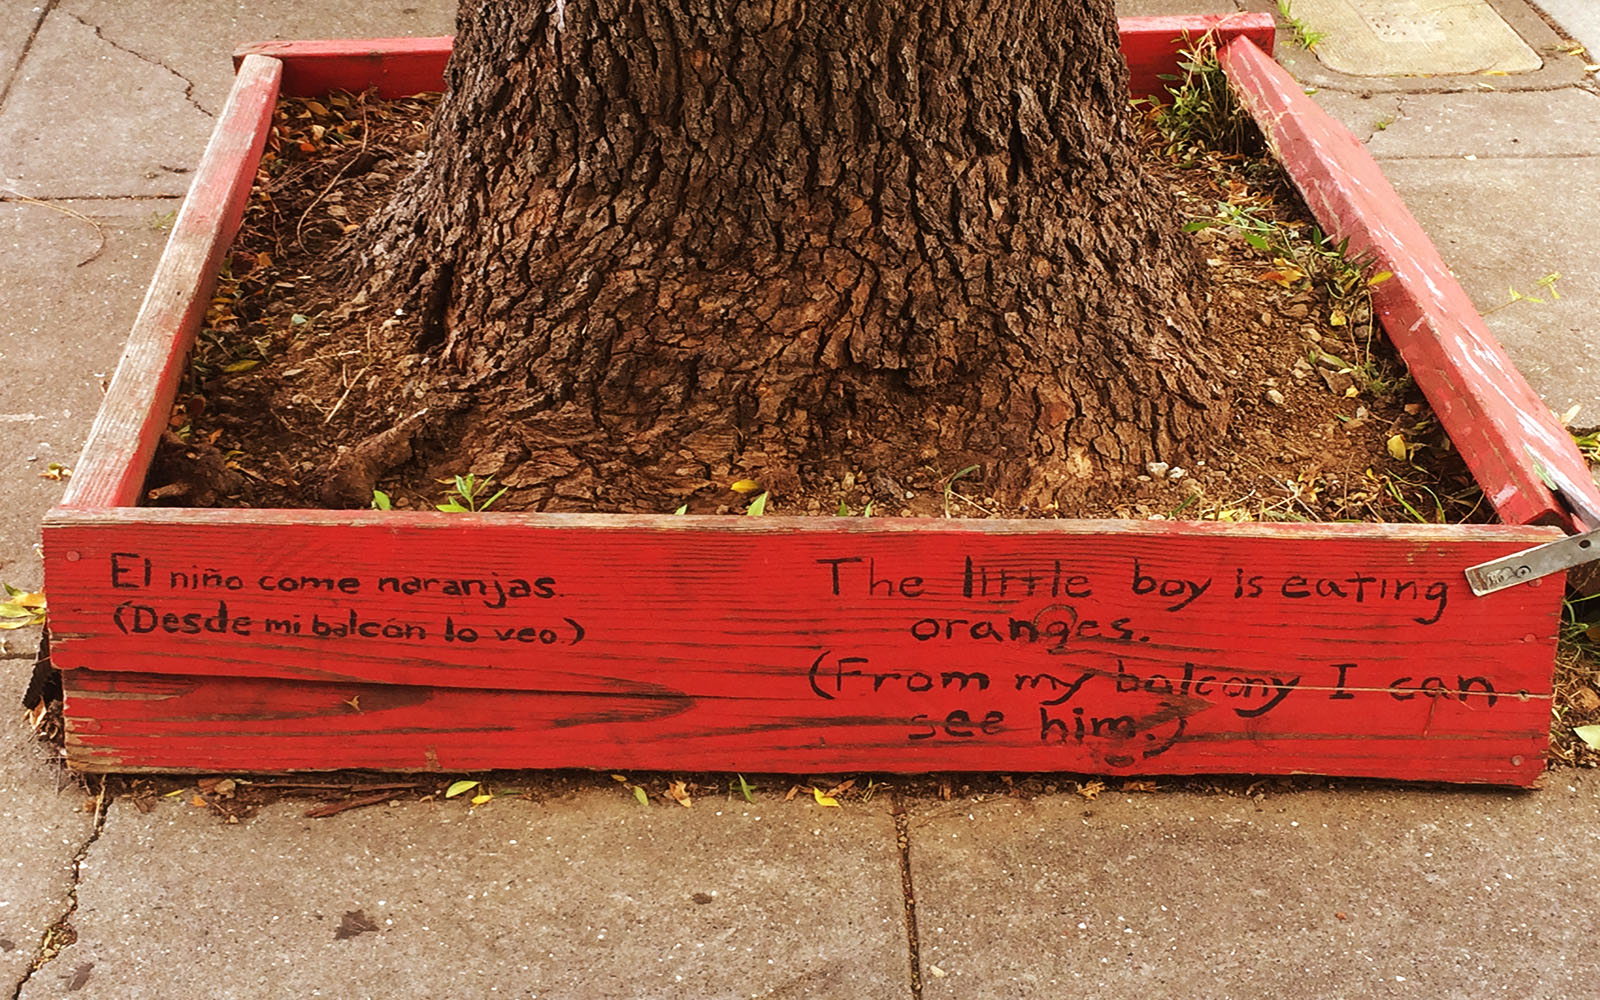 El niño come naranjas.
(Desde mi balcón lo veo.)
The little boy is eating
oranges.
(From my balcony I can
see him.)